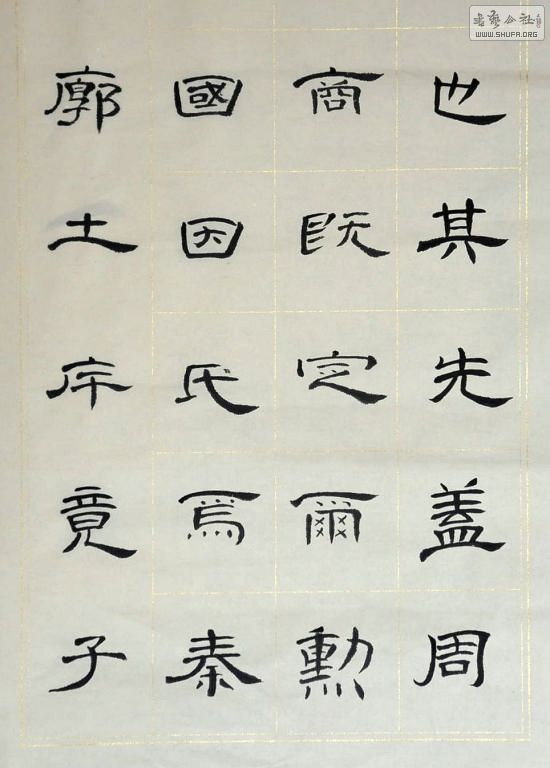 也其先盖周
商既定爾勳
國因氏焉秦
廓土斥竟子
书艺公社
WWW.SHUFA.ORG